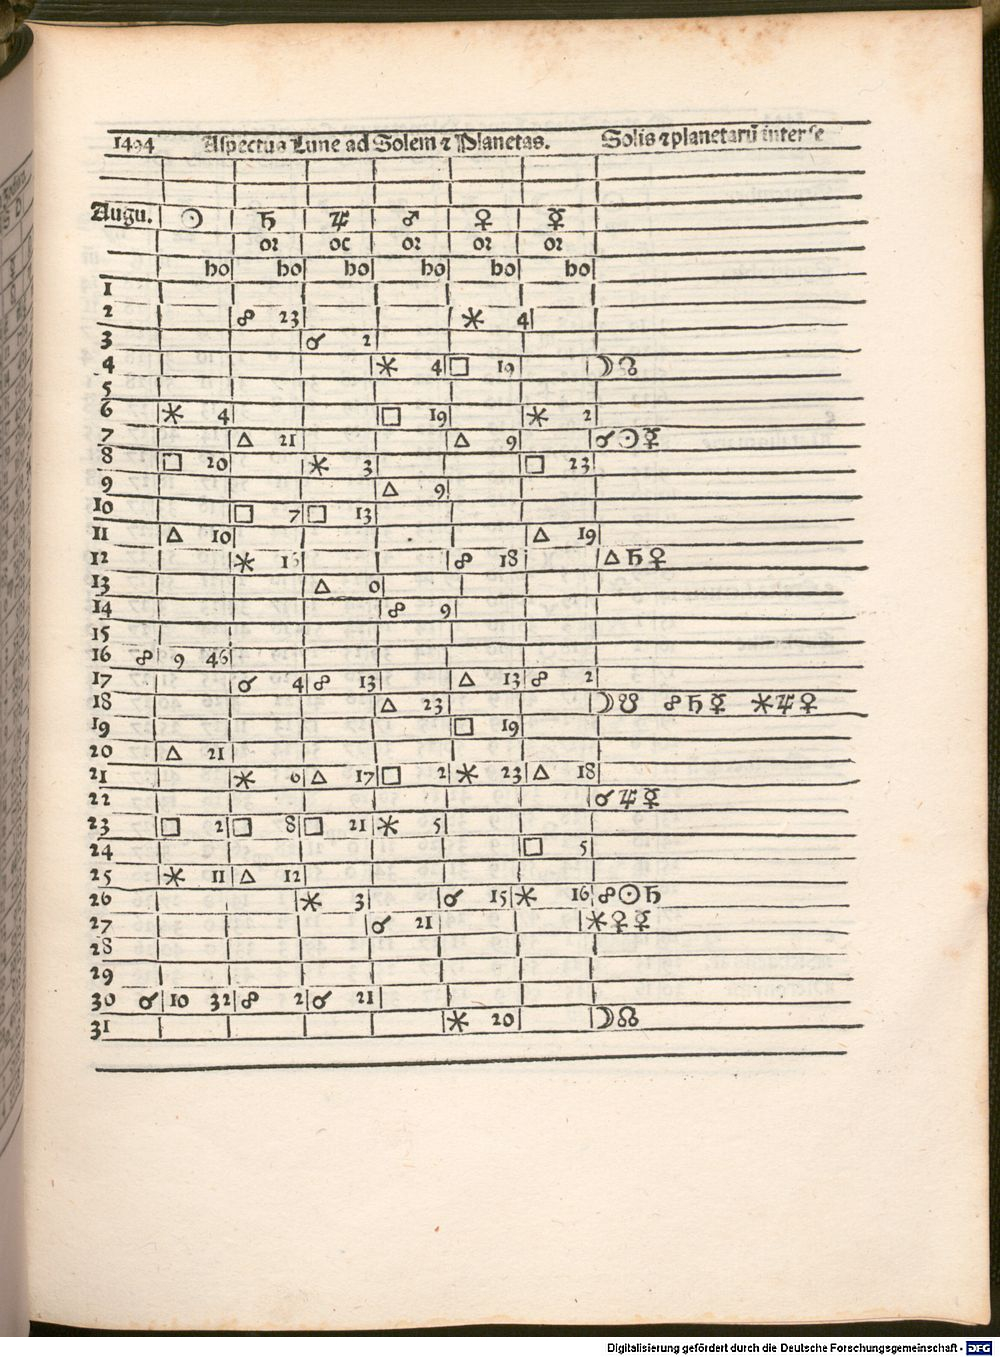 1494 Aspectus Lune ad Solem ⁊ Planetas. Solis ⁊ planetarū inter se
Augu. ☉ ♄ ♃ ♂ ♀ ☿
or oc or or or
ho ho ho ho ho ho
1
2 ☍ 23 ⚹ 4
3 ☌ 2
4 ⚹ 4 □ 19 ☽☊
5
6 ⚹ 4 □ 19 ⚹ 2
7 △ 21 △ 9 ☌☉☿
8 □ 20 ⚹ 3 □ 23
9 △ 9
10 □ 7 □ 13
11 △ 10 △ 19
12 ⚹ ☍ 18 △♄♀
13 △ 0
14 ☍ 9
15
16 ☍ 9 46
17 ☌ 4 ☍ 13 △ 13 ☍ 2
18 △ 23 ☽☋ ☍♄☿ ⚹♃♀
19 □ 19
20 △ 21
21 ⚹ 6 △ 17 □ 2 ⚹ 23 △ 18
22 ☌♃☿
23 □ 2 □ 8 □ 21 ⚹ 5
24 □ 5
25 ⚹ 11 △ 12
26 ⚹ 3 ☌ 15 ⚹ 16 ☍☉♄
27 ☌ 21 ⚹♀☿
28
29
30 ☌ 10 32 ☍ 2 ☌ 21
31 ⚹ 20 ☽☊
Digitalisierung gefördert durch die Deutsche Forschungsgemeinschaft - DFG